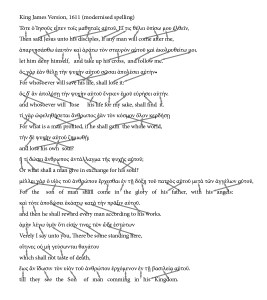 King James Version, 1611 (modernised spelling)
Τότε ὁ Ἰησοῦς εἶπεν τοῖς μαθηταῖς αὐτοῦ, Εἴ τις θέλει ὀπίσω μου ἐλθεῖν,
Then said Jesus unto his disciples, If any man will come after me,
ἀπαρνησάσθω ἑαυτὸν καὶ ἀράτω τὸν σταυρὸν αὐτοῦ καὶ ἀκολουθείτω μοι.
let him deny himself, and take up his cross, and follow me.
ὃς γὰρ ἐὰν θέλῃ τὴν ψυχὴν αὐτοῦ σῶσαι ἀπολέσει αὐτήν·
For whosoever will save his life, shall lose it:
ὃς δ᾽ ἂν ἀπολέσῃ τὴν ψυχὴν αὐτοῦ ἕνεκεν ἐμοῦ εὑρήσει αὐτήν.
and whosoever will lose his life for my sake, shall find it.
τί γὰρ ὠφεληθήσεται ἄνθρωπος ἐὰν τὸν κόσμον ὅλον κερδήσῃ
For what is a man profited, if he shall gain the whole world,
τὴν δὲ ψυχὴν αὐτοῦ ζημιωθῇ;
and lose his own soul?
ἢ τί δώσει ἄνθρωπος ἀντάλλαγμα τῆς ψυχῆς αὐτοῦ;
Or what shall a man give in exchange for his soul?
μέλλει γὰρ ὁ υἱὸς τοῦ ἀνθρώπου ἔρχεσθαι ἐν τῇ δόξῃ τοῦ πατρὸς αὐτοῦ μετὰ τῶν ἀγγέλων αὐτοῦ,
For the son of man shall come in the glory of his father, with his angels:
καὶ τότε ἀποδώσει ἑκάστῳ κατὰ τὴν πρᾶξιν αὐτοῦ.
and then he shall reward every man according to his works.
ἀμὴν λέγω ὑμῖν ὅτι εἰσίν τινες τῶν ὧδε ἑστώτων
Verely I say unto you, There be some standing here,
οἵτινες οὐ μὴ γεύσωνται θανάτου
which shall not taste of death,
ἕως ἂν ἴδωσιν τὸν υἱὸν τοῦ ἀνθρώπου ἐρχόμενον ἐν τῇ βασιλείᾳ αὐτοῦ.
till they see the Son of man comming in his Kingdom.